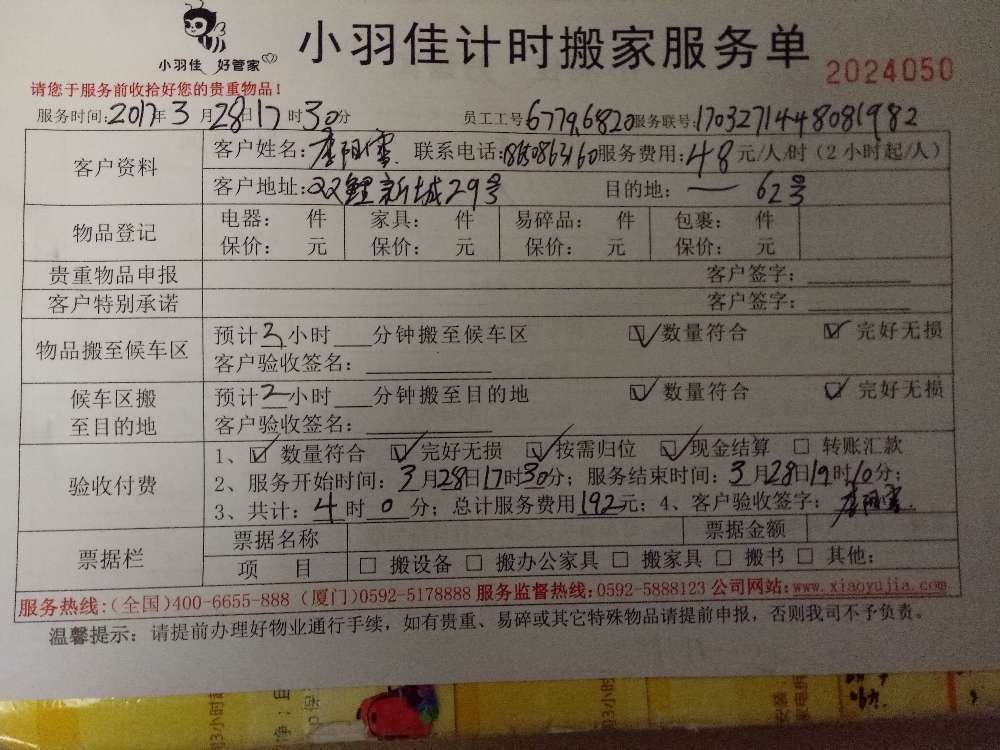 小羽佳 好管家
小羽佳计时搬家服务单
2024050
请您于服务前收拾好您的贵重物品！
服务时间：2017年3月28日17时30分 员工工号6779,6820服务联号：1703271448081982
客户资料
客户姓名： 联系电话： 服务费用：48元/人/时（2小时起/人）
客户地址：双鲤新城29号 目的地：— 62号
物品登记
电器： 件 家具： 件 易碎品： 件 包裹： 件
保价： 元 保价： 元 保价： 元 保价： 元
贵重物品申报 客户签字：
客户特别承诺 客户签字：
物品搬至候车区
预计2小时 分钟搬至候车区 数量符合 完好无损
客户验收签名：
候车区搬
至目的地
预计2小时 分钟搬至目的地 数量符合 完好无损
客户验收签名：
验收付费
1、 数量符合 完好无损 按需归位 现金结算 转账汇款
2、服务开始时间：3月28日17时30分；服务结束时间：3月28日19时10分；
3、共计：4时0分；总计服务费用192元；4、客户验收签字：
票据栏
票据名称 票据金额
项 目 搬设备 搬办公家具 搬家具 搬书 其他：
服务热线：(全国)400-6655-888 (厦门)0592-5178888 服务监督热线：0592-5888123 公司网站：www.xiaoyujia.com
温馨提示：请提前办理好物业通行手续，如有贵重、易碎或其它特殊物品请提前申报，否则我司不予负责。